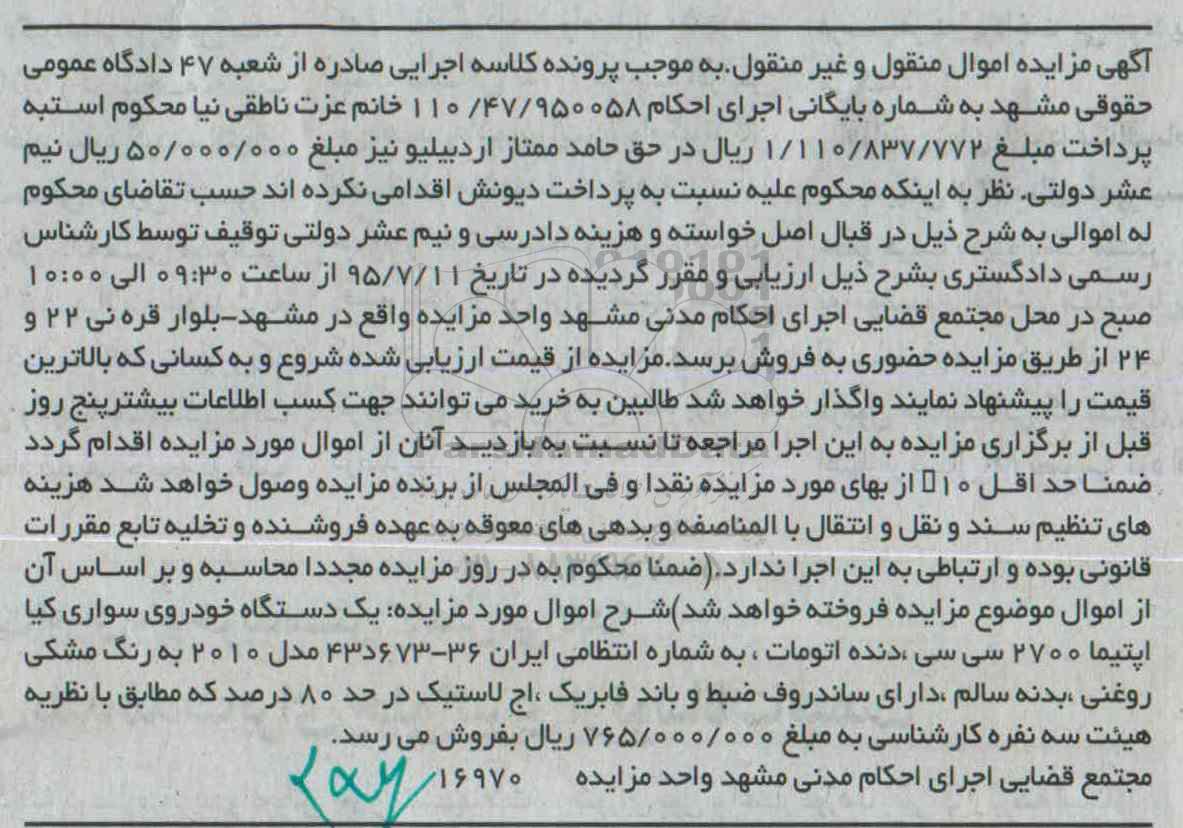 آگهی مزایده اموال منقول و غیر منقول.به موجب پرونده کلاسه اجرایی صادره از شعبه ۴۷ دادگاه عمومی
حقوقی مشهد به شماره بایگانی اجرای احکام ۱۱۰/۴۷/۹۵۰۰۵۸ خانم عزت ناطقی نیا محکوم استبه
پرداخت مبلغ ۱/۱۱۰/۸۳۷/۷۷۲ ریال در حق حامد ممتاز اردبیلیو نیز مبلغ ۵۰/۰۰۰/۰۰۰ ریال نیم
عشر دولتی. نظر به اینکه محکوم علیه نسبت به پرداخت دیونش اقدامی نکرده اند حسب تقاضای محکوم
له اموالی به شرح ذیل در قبال اصل خواسته و هزینه دادرسی و نیم عشر دولتی توقیف توسط کارشناس
رسمی دادگستری بشرح ذیل ارزیابی و مقرر گردیده در تاریخ ۹۵/۷/۱۱ از ساعت ۰۹:۳۰ الی ۱۰:۰۰
صبح در محل مجتمع قضایی اجرای احکام مدنی مشهد واحد مزایده واقع در مشهد-بلوار قره نی ۲۲ و
۲۴ از طریق مزایده حضوری به فروش برسد.مزایده از قیمت ارزیابی شده شروع و به کسانی که بالاترین
قیمت را پیشنهاد نمایند واگذار خواهد شد طالبین به خرید می توانند جهت کسب اطلاعات بیشترپنج روز
قبل از برگزاری مزایده به این اجرا مراجعه تا نسبت به بازدید آنان از اموال مورد مزایده اقدام گردد
ضمنا حد اقل ۱۰ از بهای مورد مزایده نقدا و فی المجلس از برنده مزایده وصول خواهد شد هزینه
های تنظیم سند و نقل و انتقال با المناصفه و بدهی های معوقه به عهده فروشنده و تخلیه تابع مقررات
قانونی بوده و ارتباطی به این اجرا ندارد.(ضمنا محکوم به در روز مزایده مجددا محاسبه و بر اساس آن
از اموال موضوع مزایده فروخته خواهد شد)شرح اموال مورد مزایده: یک دستگاه خودروی سواری کیا
اپتیما ۲۷۰۰ سی سی ،دنده اتومات ، به شماره انتظامی ایران ۳۶-۶۷۳د۴۳ مدل ۲۰۱۰ به رنگ مشکی
روغنی ،بدنه سالم ،دارای ساندروف ضبط و باند فابریک ،اج لاستیک در حد ۸۰ درصد که مطابق با نظریه
هیئت سه نفره کارشناسی به مبلغ ۷۶۵/۰۰۰/۰۰۰ ریال بفروش می رسد.
مجتمع قضایی اجرای احکام مدنی مشهد واحد مزایده ۱۶۹۷۰